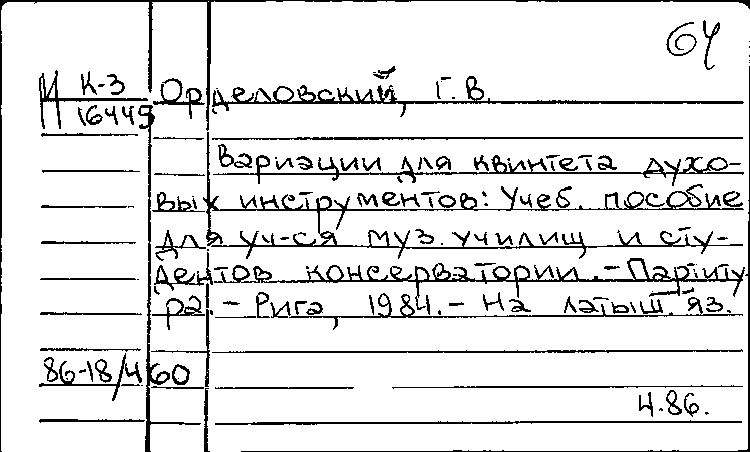 64
И К-3
16449
Орделовский, Г.В.
Вариации для квинтета духо-
вых инструментов: Учеб. пособие
для уч-ся муз. училищ и сту-
дентов консерватории. - Партиту
ра. - Рига, 1984. - На латыш. яз.
86-18/460
4.86.